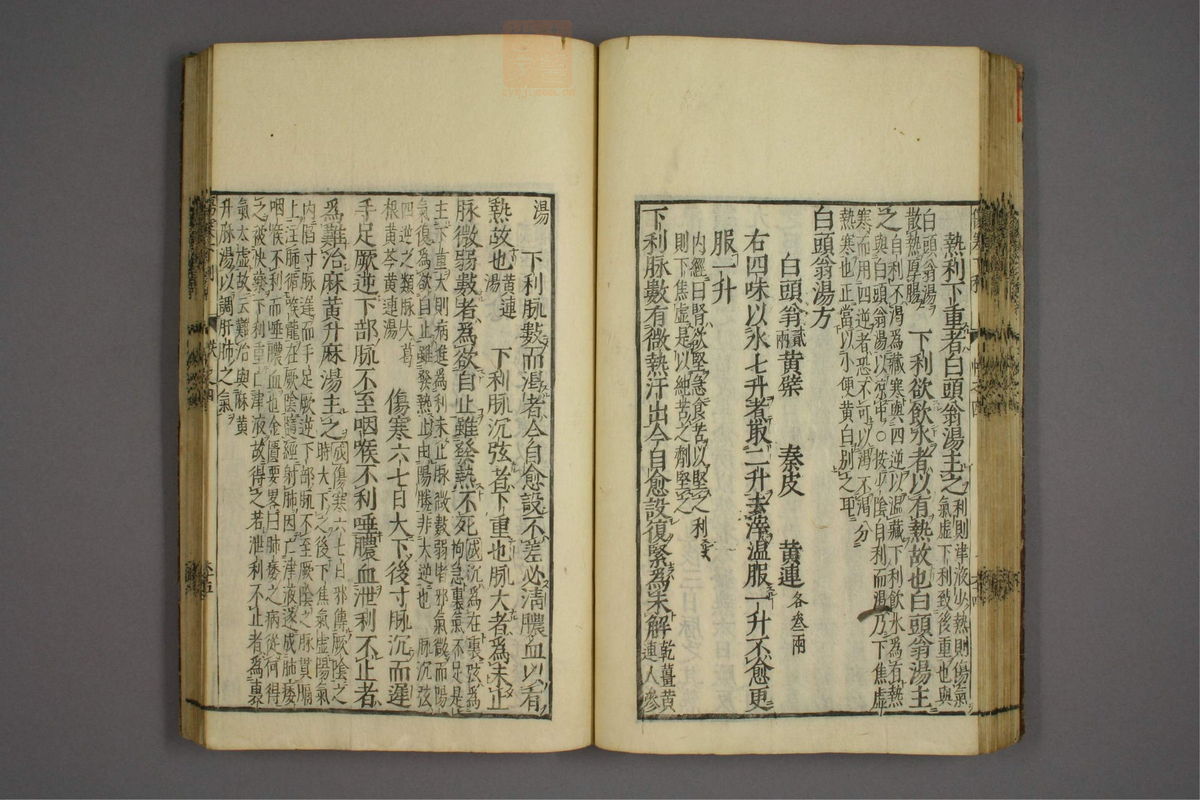 熱利下重者白頭翁湯主之利則津液少熱則傷氣
氣虛下利致後重也與
白頭翁湯
散熱厚腸
下利欲飲水者以有熱故也白頭翁湯主
之自利不渴為藏寒與四逆以溫藏下利飲水為有熱
與白頭翁湯以凉中○按少陰自利而渴乃下焦虛
寒而用四逆者恐不可以渴不渴分
熱寒也正當以小便黃白別之耳
白頭翁湯方
白頭翁貳兩黃檗 秦皮 黃連各叁兩
右四味以水七升煮取二升去滓溫服一升不愈更
服一升
內經曰腎欲堅急食苦以堅之利
則下焦虛是以純苦之劑堅之
下利脉數有微熱汗出今自愈設復緊為未解乾薑黃
連人參
湯
下利脉數而渴者今自愈設不差必清膿血以有
熱故也黃連
湯
下利脉沉弦者下重也脉大者為未止
脉微弱數者為欲自止雖發熱不死
拘急裏氣不足是
主下重大則病進為利未止脉微數弱皆邪氣微而陽
氣復為欲自止雖發熱止由陽勝非大逆也
脉沉弦
四逆之類脉大葛
根黃芩黃連湯
傷寒六七日大下後寸脉沉而遲
手足厥逆下部脉不至咽喉不利唾膿血泄利不止者
為難治麻黃升麻湯主之
傷寒六七日邪傳厥陰之
時大下之後下焦氣虛陽氣
內陷寸脉遲而手足厥逆下部脉不至厥陰之脉貫膈
上注肺循喉嚨在厥陰隨經射肺因亡津液遂成肺痿
咽喉不利而唾膿血也金匱要畧曰肺痿之病從何得
之被快藥下利重亡津液故得之若泄利不止者為裏
氣大虛故云難治與麻黃
升麻湯以調肝肺之氣